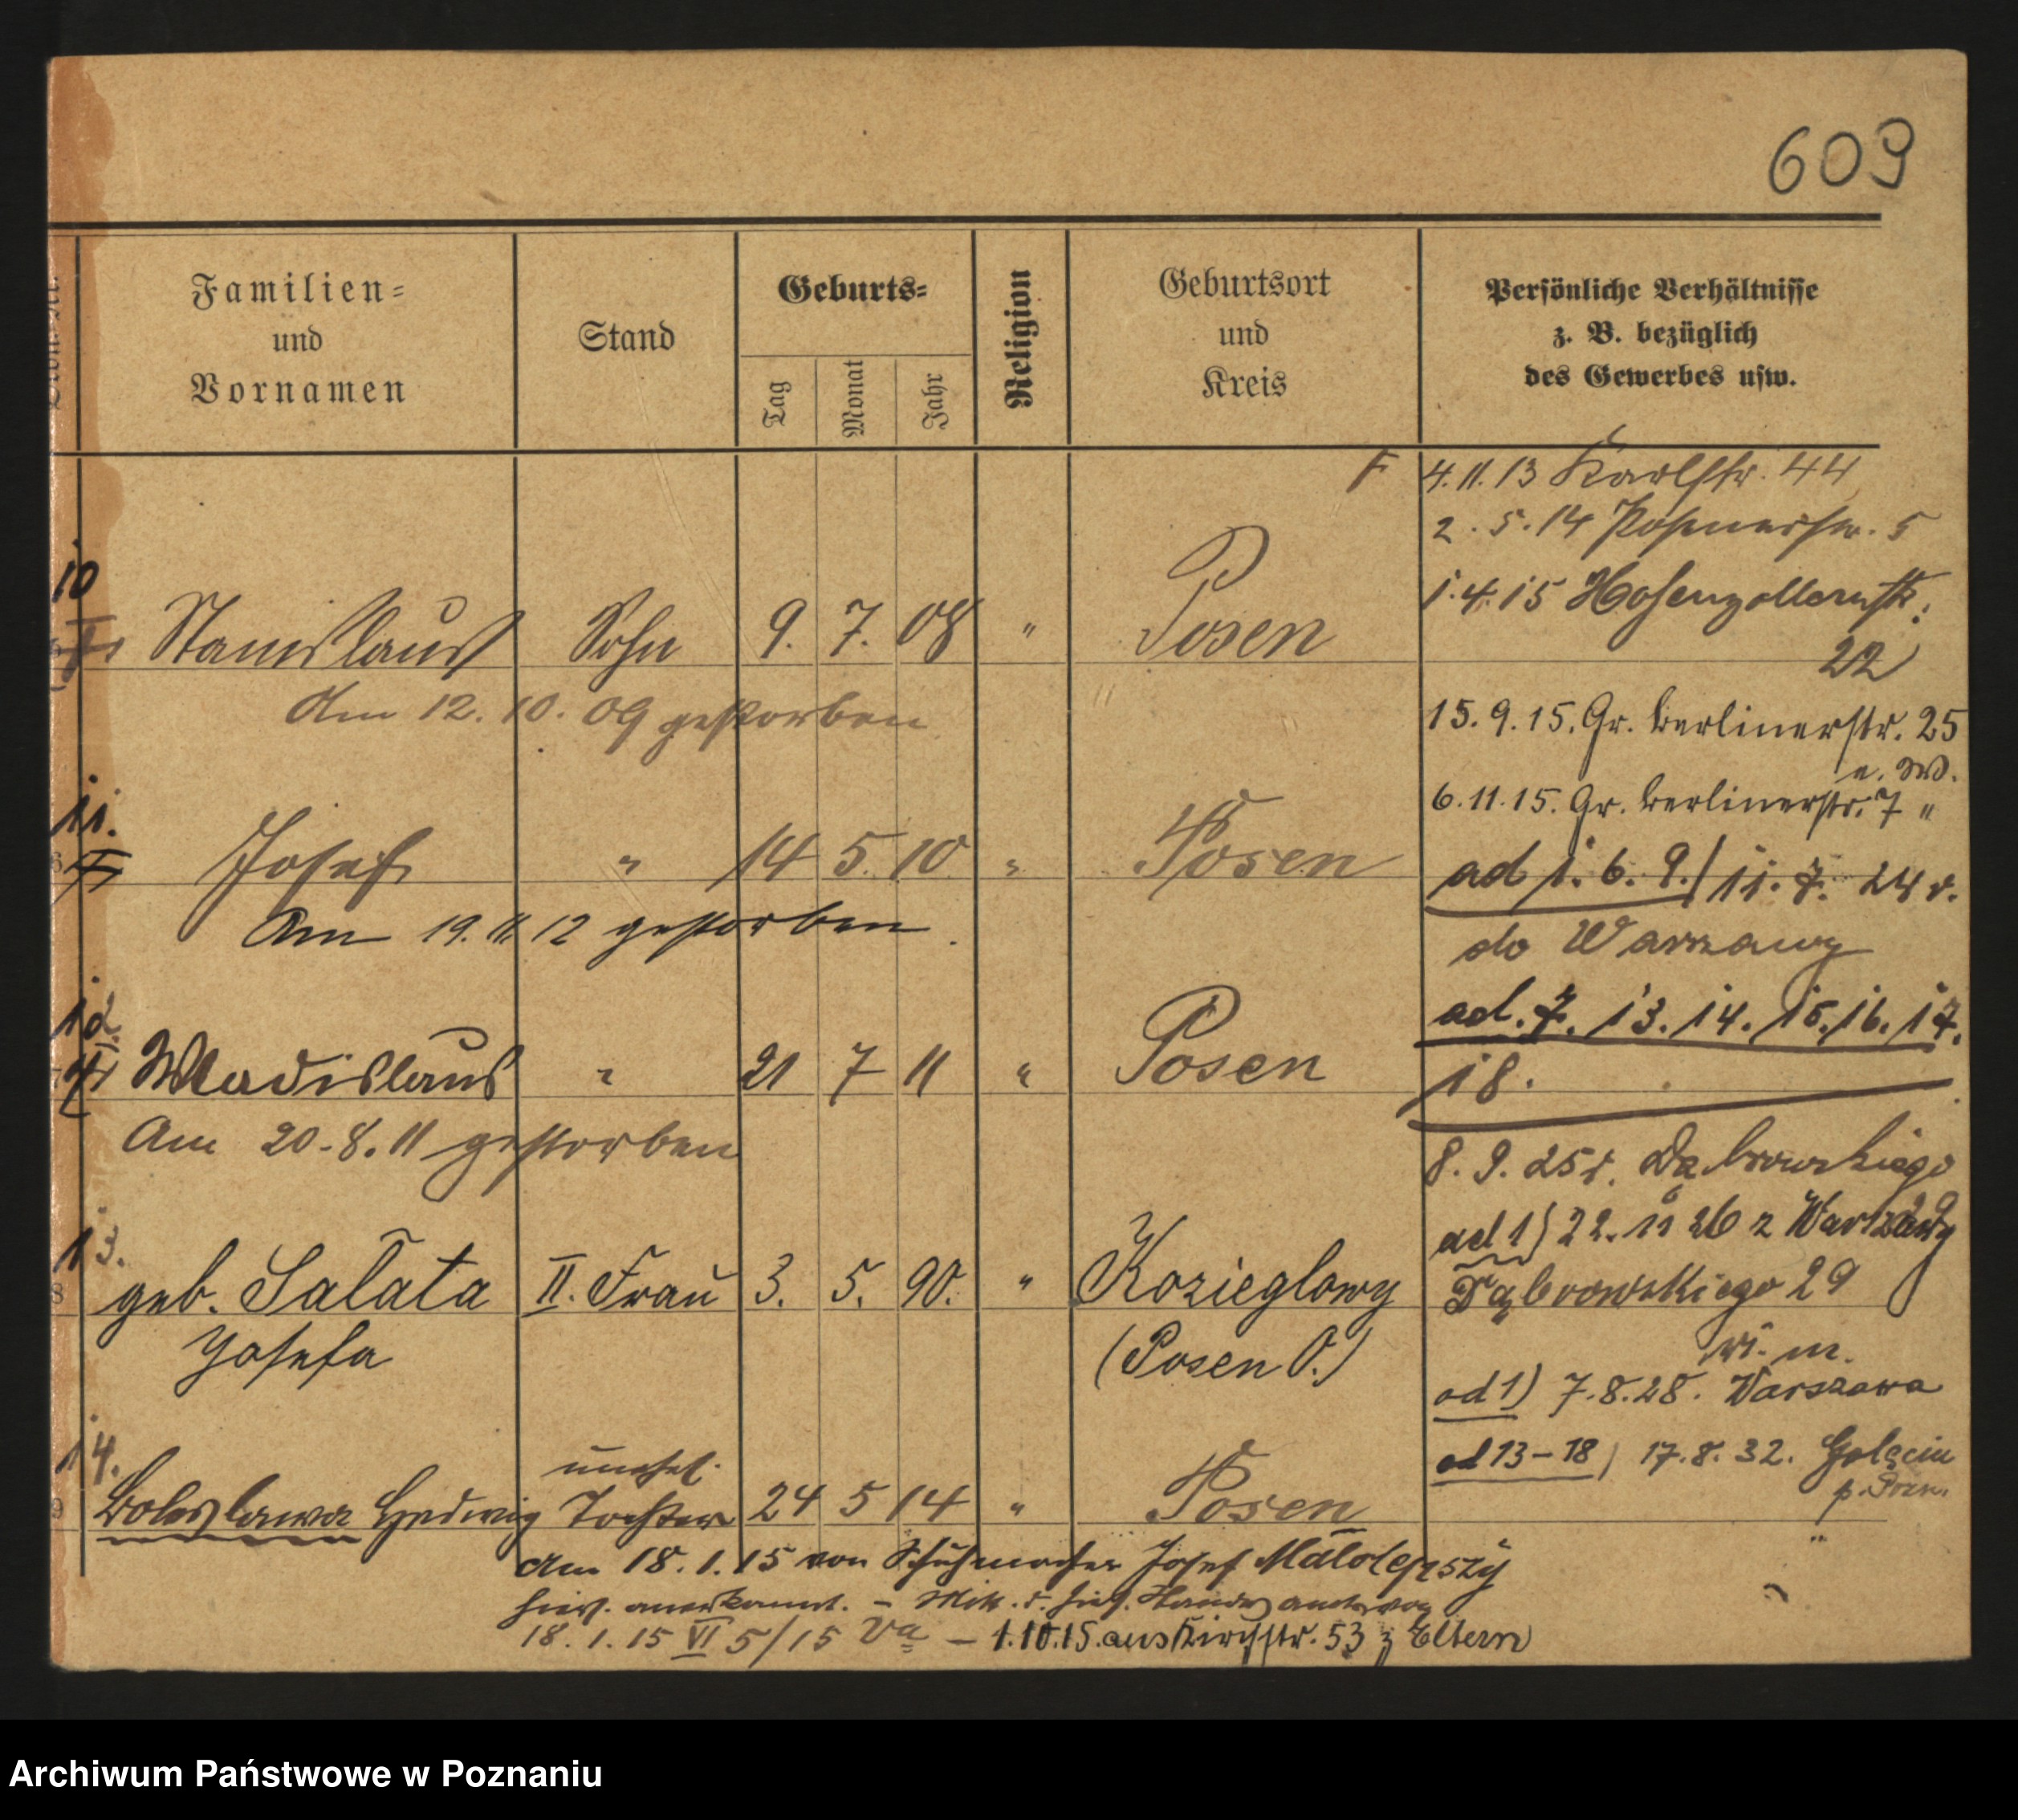 609
Familien=
und
Vornamen
Stand
Geburts=
Tag
Monat
Jahr
Religion
Geburtsort
und
Kreis
Persönliche Verhältnisse
z. B. bezüglich
des Gewerbes usw.
4.11.13 Karlstr. 44
2.5.14 Posenerstr. 5
1.4.15 Hohenzollernstr.
22
10
Stanislaus Sohn 9. 7. 08 " Posen
Am 12.10.09 gestorben
15.9.15. Gr. Berlinerstr. 25
6.11.15. Gr. Berlinerstr. 7 "
11.
Josef " 14 5. 10 " Posen
Am 19.11.12 gestorben
ad 1. 6. 9./ 11. 7. 24 r.
do Warszawy
12
Wladislaus " 21 7 11 " Posen
Am 20.8.11 gestorben
ad. 7. 13. 14. 15. 16. 17.
18.
8.9.25 r. Dąbrowskiego
29
ad 1) 22. 11 26 z Warszawy
Dąbrowskiego 29
13.
geb. Salata II. Frau 3. 5. 90. " Kozieglowy
Josefa (Posen O.)
m.
ad 1) 7.8.28. Warszawa
ad 13–18) 17.8.32. Golęcin
p. Pozn.
14.
unehel.
Boleslawa Hedwig Tochter 24 5 14 " Posen
Am 18.1.15 von Schuhmacher Josef Malolepszy
hier. anerkannt. –
18.1.15 VI 5/15 Va – 1.10.15. aus Kirchstr. 53 z Eltern
Archiwum Państwowe w Poznaniu